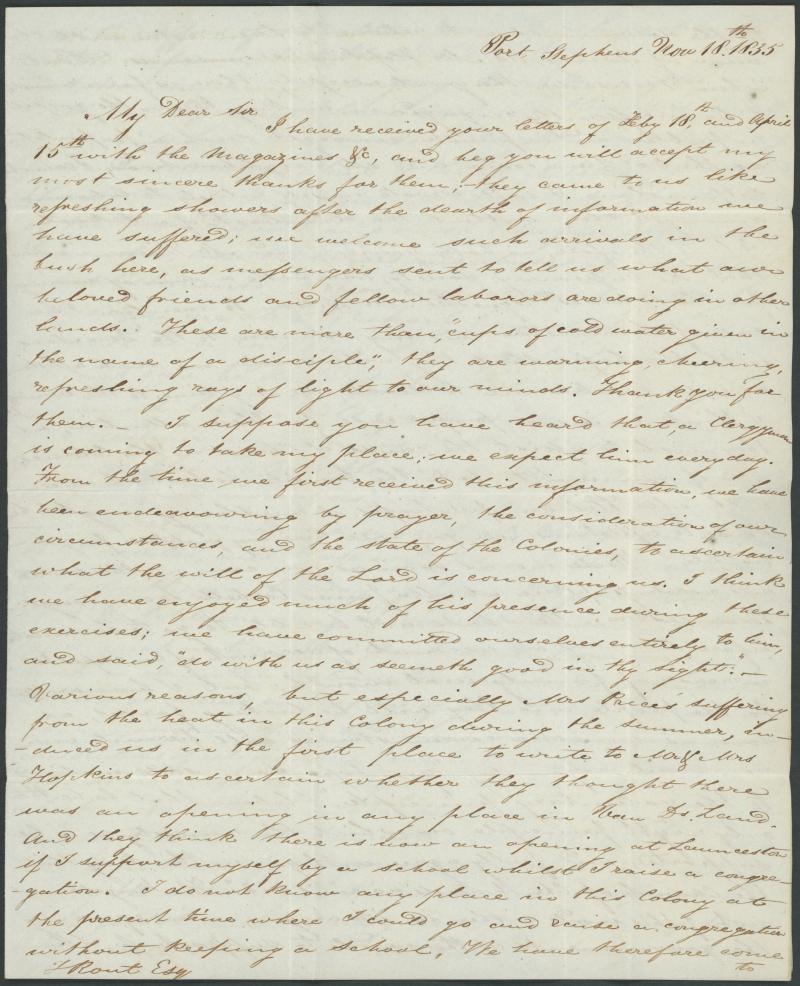 Port Stephens Nov 18.th 1835
My Dear Sir
I have received your letters of Feby 18,th and April
15th with the Magazines &c, and beg you will accept my
most sincere thanks for them; they came to us like
refreshing showers after the dearth of information we
have suffered; we welcome such arrivals in the
bush here, as messengers sent to tell us what our
beloved friends and fellow laborors are doing in other
lands. These are more than, "cups of cold water given in
the name of a disciple", they are warming, cheering,
refreshing rays of light to our minds. Thank you for
them. – I suppose you have heard that, a Clergyman
is coming to take my place; we expect him everyday.
From the time we first received this information, we have
been endeavouring by prayer, the consideration of our
circumstances, and the state of the Colonies, to ascertain
what the will of the Lord is concerning us. I think
we have enjoyed much of his presence during these
exercises; we have committed ourselves entirely to him,
and said, "do with us as seemeth good in thy sight." –
Various reasons, but especially Mrs Price's suffering
from the heat in this Colony during the summer, in-
-duced us in the first place to write to Mr & Mrs
Hopkins to ascertain whether they thought there
was an opening in any place in Van Ds. Land.
And they think there is now an opening at Launceston
if I support myself by a school whilst I raise a congre-
-gation. I do not know any place in this Colony at
the present time where I could go and raise a congregation
without keeping a school. We have therefore come
to
J Rout Esq